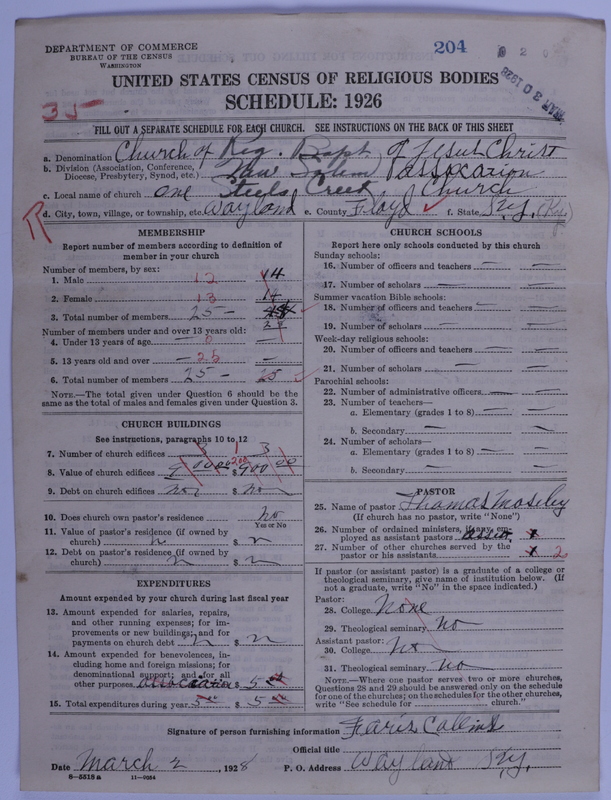 DEPARTMENT OF COMMERCE
BUREAU OF THE CENSUS
WASHINGTON
204
MAR 20 1928
UNITED STATES CENSUS OF RELIGIOUS BODIES
SCHEDULE: 1926
35
FILL OUT A SEPARATE SCHEDULE FOR EACH CHURCH. SEE INSTRUCTIONS ON THE BACK OF THIS SHEET
a. Denomination Church of Reg. Bapt. of Jesus Christ
b. Division (Association, Conference, Diocese, Presbytery, Synod, etc.) New Salem association
c. Local name of church one Steels Creek Church
d. City, town, village, or township, etc. Wayland e. County Floyd f. State Ky. (Ky.)
R
MEMBERSHIP
Report number of members according to definition of
member in your church
Number of members, by sex:
1. Male 12 14
2. Female 13 14
3. Total number of members 25 28
Number of members under and over 13 years old:
4. Under 13 years of age 0
5. 13 years old and over 25
6. Total number of members 25 25
NOTE.—The total given under Question 6 should be the
same as the total of males and females given under Question 3.
CHURCH BUILDINGS
See instructions, paragraphs 10 to 12
7. Number of church edifices 1 3
8. Value of church edifices 200 $ 900 00
9. Debt on church edifices no $ no
10. Does church own pastor's residence no
Yes or No
11. Value of pastor's residence (if owned by
church) n $ n
12. Debt on pastor's residence (if owned by
church) n $ n
EXPENDITURES
Amount expended by your church during last fiscal year
13. Amount expended for salaries, repairs,
and other running expenses; for im-
provements or new buildings; and for
payments on church debt n $ n
14. Amount expended for benevolences, in-
cluding home and foreign missions; for
denominational support; and for all
other purposes association $ 5
15. Total expenditures during year 5 $ 5
CHURCH SCHOOLS
Report here only schools conducted by this church
Sunday schools:
16. Number of officers and teachers
17. Number of scholars
Summer vacation Bible schools:
18. Number of officers and teachers
19. Number of scholars
Week-day religious schools:
20. Number of officers and teachers
21. Number of scholars
Parochial schools:
22. Number of administrative officers
23. Number of teachers—
a. Elementary (grades 1 to 8)
b. Secondary
24. Number of scholars—
a. Elementary (grades 1 to 8)
b. Secondary
PASTOR
25. Name of pastor Thomas Mosely
(If church has no pastor, write "None")
26. Number of ordained ministers, if any, em-
ployed as assistant pastors
27. Number of other churches served by the
pastor or his assistants 2
If pastor (or assistant pastor) is a graduate of a college or
theological seminary, give name of institution below. (If
not a graduate, write "No" in the space indicated.)
Pastor:
28. College None
29. Theological seminary no
Assistant pastor:
30. College no
31. Theological seminary no
NOTE.—Where one pastor serves two or more churches,
Questions 28 and 29 should be answered only on the schedule
for one of the churches; on the schedules for the other churches,
write "See schedule for church."
Signature of person furnishing information Faris Collins
Official title
Date March 2, 1928 P. O. Address Wayland Ky.
8—5518 a 11—9056